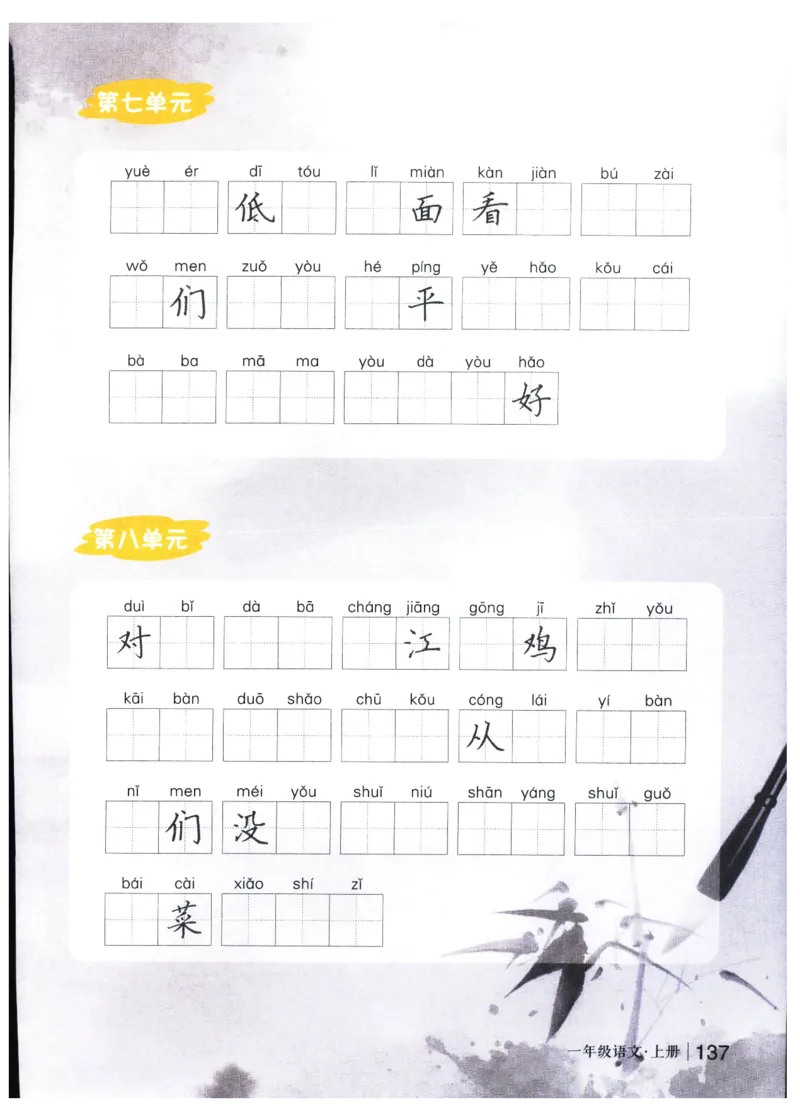 第七单元
yuè ér dī tóu lǐ miàn kàn jiàn bú zài
低 面 看
wǒ men zuǒ yòu hé píng yě hǎo kǒu cái
们 平
bà ba mā ma yòu dà yòu hǎo
好
第八单元
duì bǐ dà bā cháng jiāng gōng jī zhǐ yǒu
对 江 鸡
kāi bàn duō shǎo chū kǒu cóng lái yí bàn
从
nǐ men méi yǒu shuǐ niú shān yáng shuǐ guǒ
们 没
bái cài xiǎo shí zǐ
菜
一年级语文·上册 137